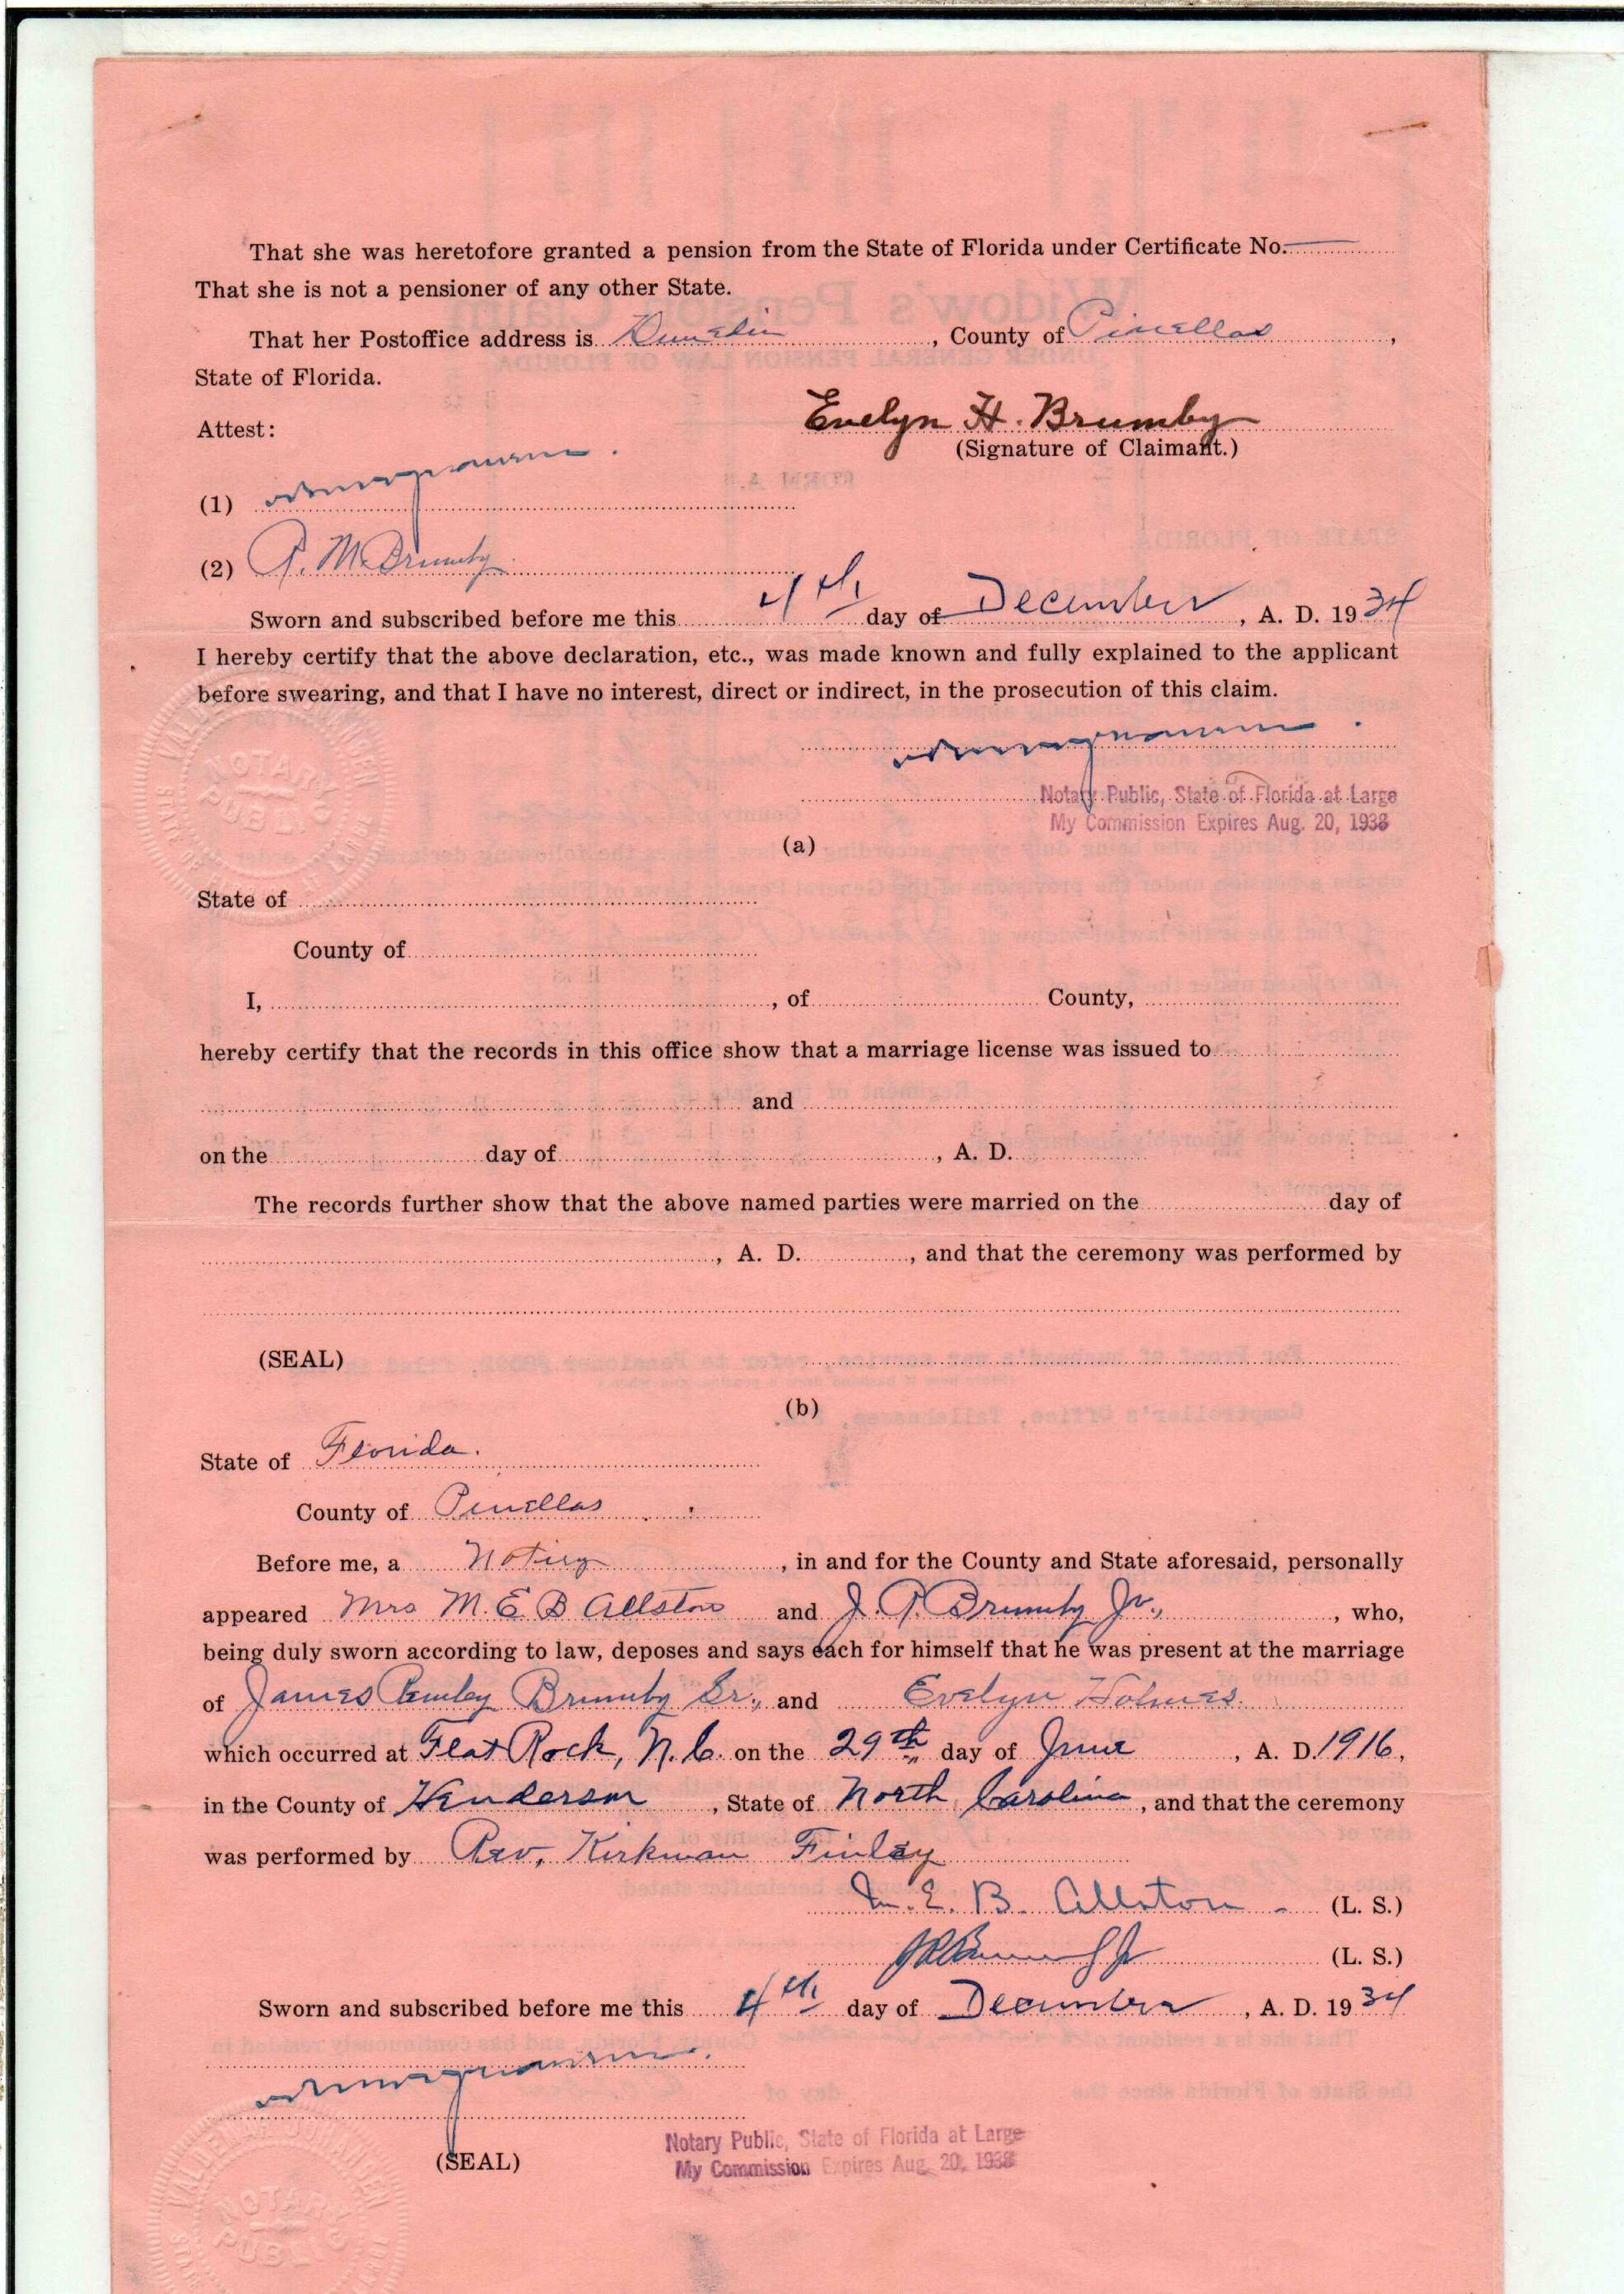 That she was heretofore granted a pension from the State of Florida under Certificate No.
That she is not a pensioner of any other State.
That her Postoffice address is Dunedin, County of Pinellas,
State of Florida.
Evelyn H. Brumby
Attest:
(Signature of Claimant.)
(1)
(2) R. M. Brumby
Sworn and subscribed before me this 4th day of December, A. D. 1934
I hereby certify that the above declaration, etc., was made known and fully explained to the applicant
before swearing, and that I have no interest, direct or indirect, in the prosecution of this claim.
NOTARY
PUBLIC
Notary Public, State of Florida at Large
My Commission Expires Aug. 20, 1938
(a)
State of
County of
I, , of County,
hereby certify that the records in this office show that a marriage license was issued to
and
on the day of , A. D.
The records further show that the above named parties were married on the day of
, A. D. , and that the ceremony was performed by
(SEAL)
(b)
State of Florida.
County of Pinellas
Before me, a Notary, in and for the County and State aforesaid, personally
appeared Mrs M. E B Allston and J. R. Brumby Jr., who,
being duly sworn according to law, deposes and says each for himself that he was present at the marriage
of James Brumby Sr., and Evelyn Holmes.
which occurred at Flat Rock, N. C. on the 29th day of June, A. D. 1916,
in the County of Henderson, State of North Carolina, and that the ceremony
was performed by Rev. Kirkman Finlay
M. E. B. Allston (L. S.)
J R Brumby Jr (L. S.)
Sworn and subscribed before me this 4th day of December, A. D. 1934
Notary Public, State of Florida at Large
(SEAL)
My Commission Expires Aug. 20, 1938
NOTARY
PUBLIC